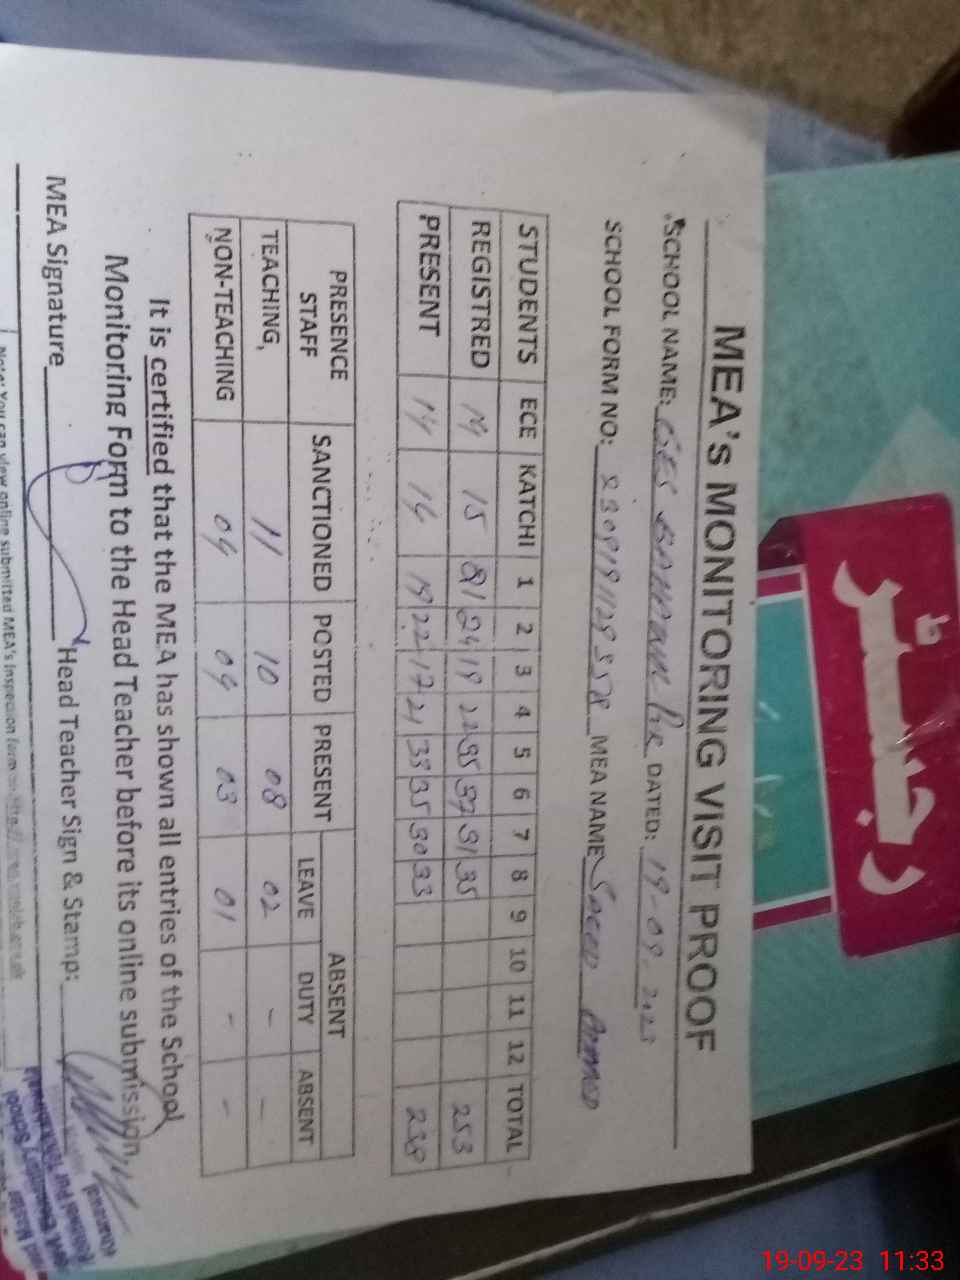 MEA's MONITORING VISIT PROOF
SCHOOL NAME: GES DATED: 19-09-2023
SCHOOL FORM NO: MEA NAME Saeed Ahmed
STUDENTS ECE KATCHI 1 2 3 4 5 6 7 8 9 10 11 12 TOTAL
REGISTRED 14 15 21 24 19 22 35 37 31 35 253
PRESENT 14 14 19 22 17 21 33 35 30 33 238
PRESENCE STAFF SANCTIONED POSTED PRESENT ABSENT
LEAVE DUTY ABSENT
TEACHING, 11 10 08 02 - -
NON-TEACHING 04 04 03 01 - -
It is certified that the MEA has shown all entries of the School
Monitoring Form to the Head Teacher before its online submission,
MEA Signature Head Teacher Sign & Stamp:
Note: You can view online submitted MEA's Inspection form on
رجسٹر
19-09-23 11:33